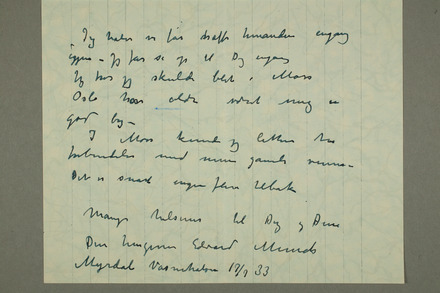 Jeg haaber vi faar træffe hinanden engang
igjen – Jeg faar se op til Dig engang
Jeg tror jeg skulde blit i Moss
Oslo har aldri været mig en
god by –
I Moss kunde jeg lettere ha
forbindelse med mine gamle venner –
Det er snart ingen flere tilbake
Mange hilsener til Dig og Dine
Din hengivne Edvard Munch
33